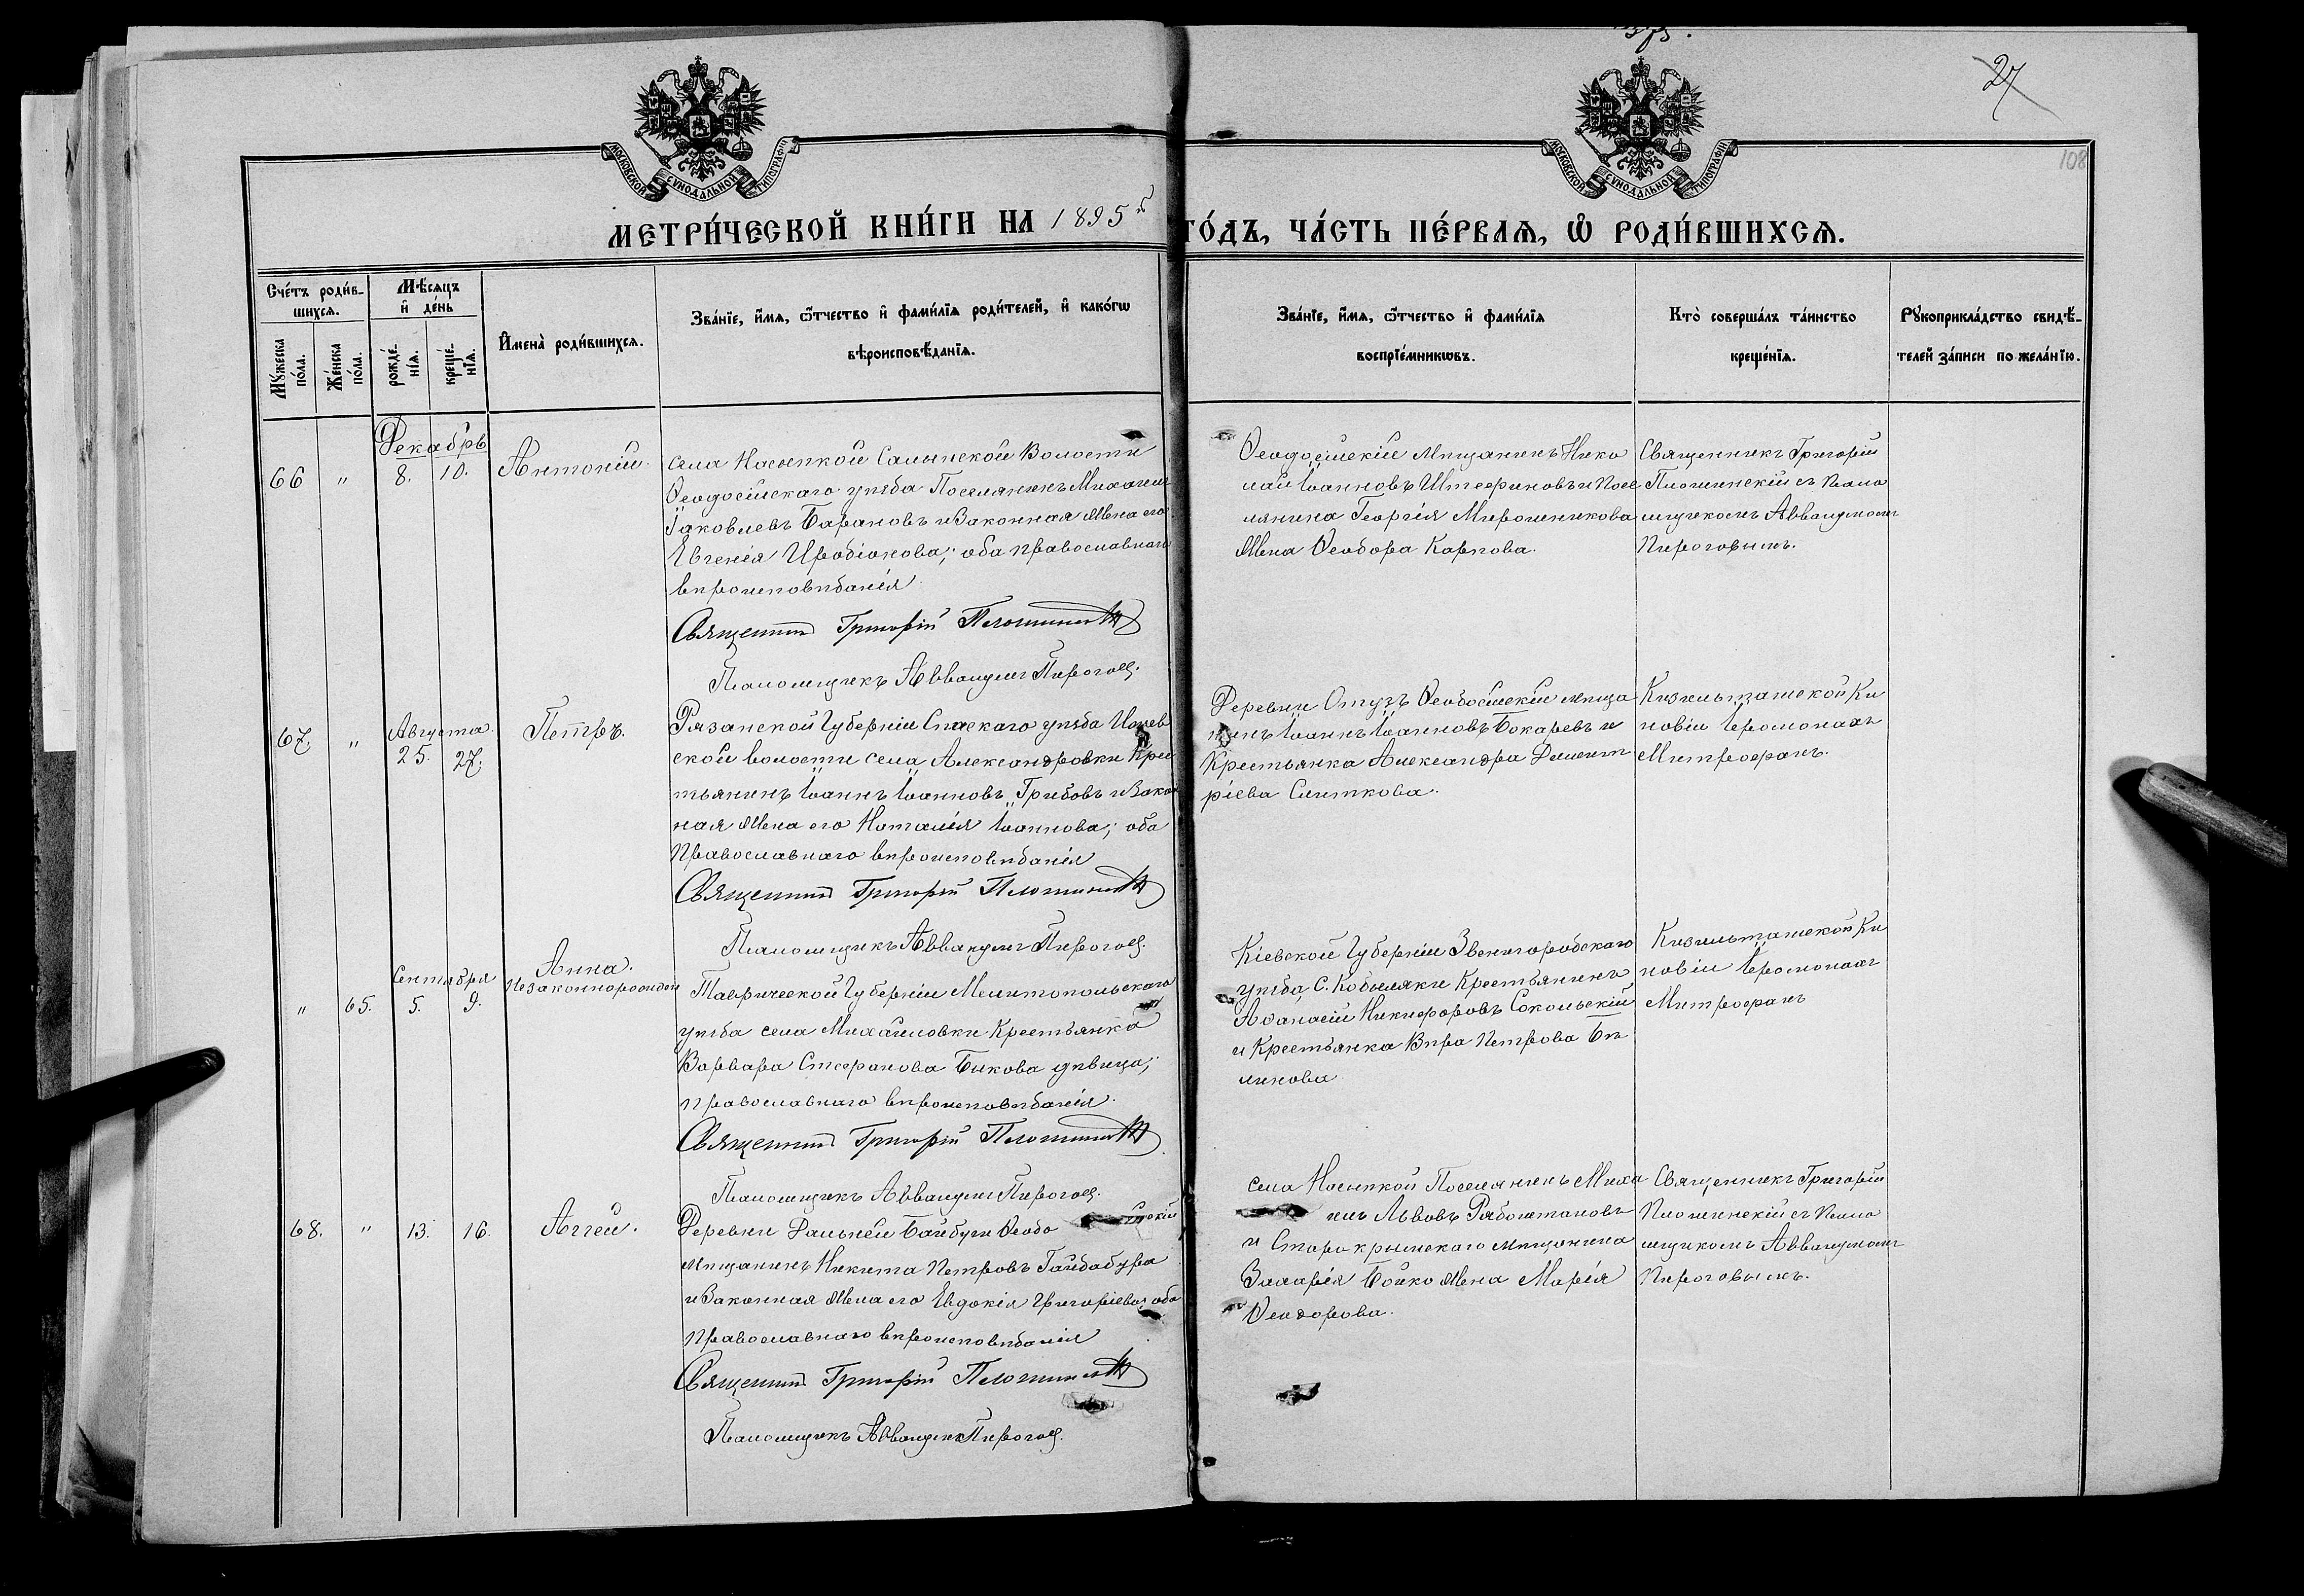 27
108
МОСКОВСКОЙ СУНОДАЛЬНОЙ ТИПОГРАФІИ
МОСКОВСКОЙ СУНОДАЛЬНОЙ ТИПОГРАФІИ
МЕТРИ́ЧЕСКОЙ КНИ́ГИ НА 1895й
ГО́ДЪ, ЧА́СТЬ ПЕ́РВАѦ, Ѡ҆ РОДИ́ВШИХСѦ.
Сче́тъ роди́в-
шихсѧ.
Мꙋ́жеска по́ла.
Же́нска по́ла.
Мѣ́сѧцъ
и҆ де́нь
рожде́-
нїѧ.
креще́-
нїѧ.
И҆мена̀ роди́вшихсѧ.
Зва́нїе, и҆́мѧ, ѻ҆́тчество и҆ фами́лїѧ роди́телей, и҆ како́гѡ
вѣроисповѣ́данїѧ.
Зва́нїе, и҆́мѧ, ѻ҆́тчество и҆ фами́лїѧ
воспрїе́мникѡвъ.
Кто̀ соверша́лъ та́инство
креще́нїѧ.
Рꙋкоприкла́дство свидѣ́-
телей за́писи по жела́нїю.
Декабрь
66 " 8. 10. Антоній.
села Насыпкой Салынской Волости
Ѳеодосійскаго уѣзда Поселянинъ Михаилъ
Іаковлевъ Барановъ и Законная Жена его
Евгенія Иродіонова; оба православнаго
вѣроисповѣданія.
Священникъ Григорій
Псаломщикъ Аввакумъ Пирогов.
Ѳеодосійскій Мѣщанинъ Нико
лай Іоанновъ и Посе
лянина Георгія Мирошникова
Жена Ѳеодора Карпова.
Священникъ Григорій
съ Псало
мщикомъ Аввакумомъ
Пироговымъ.
Августа.
67. " 25. 27. Петръ.
Рязанской Губерніи Спасскаго уѣзда Ижев
ской волости села Александровки Крес
тьянинъ Іоаннъ Іоанновъ Грибовъ и Закон
ная Жена его Наталія Іоаннова; оба
Православнаго вѣроисповѣданія
Священникъ Григорій
Псаломщикъ Аввакумъ Пирогов.
Деревни Отузъ Ѳеодосійскій мѣща
нинъ Іоаннъ Іоанновъ Бокаревъ и
Крестьянка Александра Димит
ріева Слиткова.
Кизильташской Ки
новіи Іеромонахъ
Митрофанъ.
Сентября
" 65. 5. 9. Анна.
Незаконнорожден
Таврической Губерніи Мелитопольскаго
уѣзда села Михайловки Крестьянка
Варвара Стефанова Быкова дѣвица;
православнаго вѣроисповѣданія.
Священникъ Григорій
Псаломщикъ Аввакумъ Пирогов.
Кіевской Губерніи Звенигородскаго
уѣзда, С. Кобыляки Крестьянинъ
Аѳанасій Никифоровъ Сокольскій
и Крестьянка Вѣра Петрова Бѣ
линова
Кизильташской Ки
новіи Іеромонахъ
Митрофанъ
68. " 13. 16. Аггей.
Деревни Дальней Байбуги Ѳеодо сійскій
Мѣщанинъ Никита Петровъ Гайдабура
и Законная Жена его Евдокія Григоріева; оба
Православнаго вѣроисповѣданія
Священникъ Григорій
Псаломщикъ Аввакумъ Пирогов.
села Насыпкой Поселянинъ Миха
илъ Львовъ Рябоштановъ
и Старокрымскаго мѣщанина
Захарія Бойко Жена Марія
Ѳеодорова.
Священникъ Григорій
съ Псало
мщикомъ Аввакумомъ
Пироговымъ.